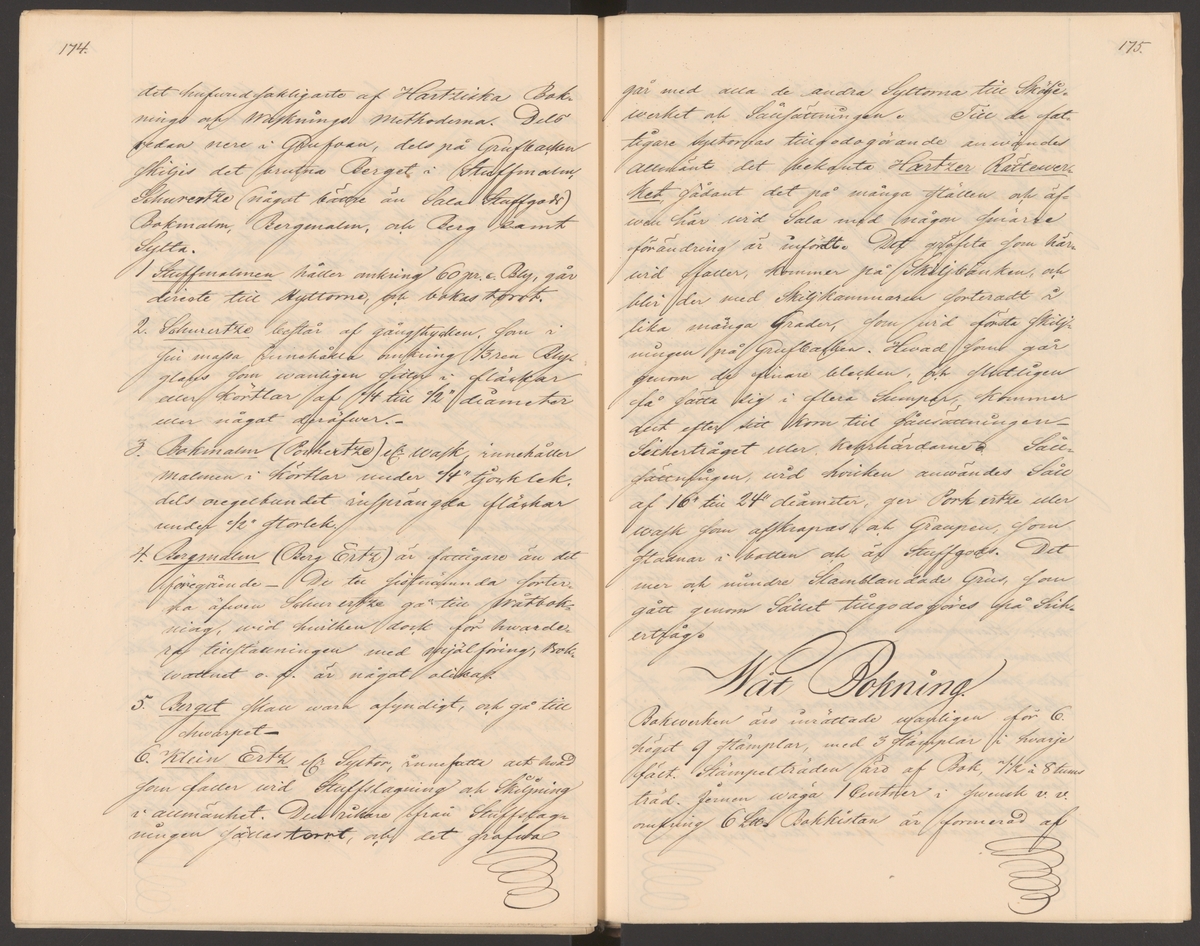 174.
det hufvudsakligaste af Hartziska Bok-
nings och Wasknings Methoderna. Dels
redan nere i Grufvan, dels på Grufbacken
skiljes det brutna Berget i Stuffmalm
Schurertze (något bättre än Sala Stuffgods)
Bokmalm, Bergmalm, och Berg samt
Sylta.
1 Stuffmalmen håller omkring 60 pr. c. Bly, går
directe till Hyttorne, och bokas torrt.
2. Schurertze består af gångstycken, som i
sin massa innehålla omkring 1/3 ren Bly-
glans som wanligen sitter i fläckar
eller körtlar af 1/4 till 1/2" diameter
eller något däröfwer.-
3. Bokmalm (Pochertze) el. Wask, innehåller
malmen i körtlar under 1/4" tjocklek,
dels oregelbundet insprängda fläckar
under 1/2" storlek.
4. Bergmalm (Berg Ertz) är fattigare än det
föregående - De tre sistnämnda sorter-
na äfwen Schurertze gå till Wåtbok-
ning, wid hvilken dock för hwarde-
ra tillställningen med mjölföring, Bok-
wattnet o. s. är något olika.
5. Berget skall wara ofyndigt, och gå till
hwarpet -
6. Klein Ertz el. Syltor, innefatta allt hvad
som faller wid Stuffslagning och Skiljning
i allmänhet. Den rikare ifrån Stuffslag-
ningen sållas torrt, och det grofsta
175.
går med alla de andra Syltorna till Skölje-
werket och Sållsättningen. Till de fat-
tigare syltornas tillgodogörande anwändes
allmänt det bekanta Hartzer Rättewer-
ket, sådant det på många ställen och äf-
wen här wid Sala med någon smärre
förändring är infördt. Det gröfsta som här-
wid faller, kommer på Skiljbänken, och
blir der med Skiljhammaren sorteradt i
lika många Grader, som wid första skilj-
ningen på Grufbacken. Hwad som går
genom de finare blecken, och slutligen
få sätta sig i flera Sumpar, kommer
det efter sitt korn till Sållsättningen -
Sichertråget eller Kehrhärdarne. Såll-
sättningen, wid hvilken anwändes Såll
af 16" till 24" diameter, ger Pochertze eller
wask som afskrapas och Graupen, som
stadnar i botten och är Stuffgods. Det
mer och mindre Slamblandade Grus, som
gått genom Sållet tillgodogöres på Sik-
ertråg.
Wåt Bokning
Bokwerken äro inrättade wanligen för 6
högst 9 stämplar, med 3 stämplar i hwarje
fält. Stämpelträden äro af Bok, 7 1/2 à 8 tums
träd. Jernen wäga 1 Centner i swensk v. v.
omkring 6 L℔. Bokkistan är formerad af